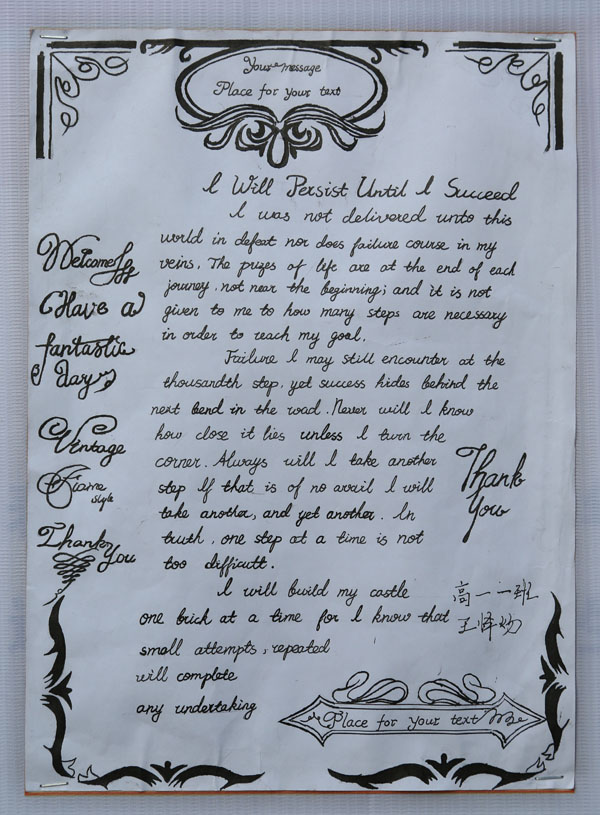 Your message
Place for your text
I Will Persist Until I Succeed
I was not delivered unto this
world in defeat nor does failure course in my
veins. The prizes of life are at the end of each
journey, not near the beginning; and it is not
given to me to how many steps are necessary
in order to reach my goal.
Failure I may still encounter at the
thousandth step, yet success hides behind the
next bend in the road. Never will I know
how close it lies unless I turn the
corner. Always will I take another
step If that is of no avail I will
take another, and yet another. In
truth, one step at a time is not
too difficult.
I will build my castle
one brick at a time for I know that
small attempts, repeated
will complete
any undertaking
Welcome
Have a
fantastic
day
Vintage
style
Thank
You
Thank
You
高一一班
Place for your text